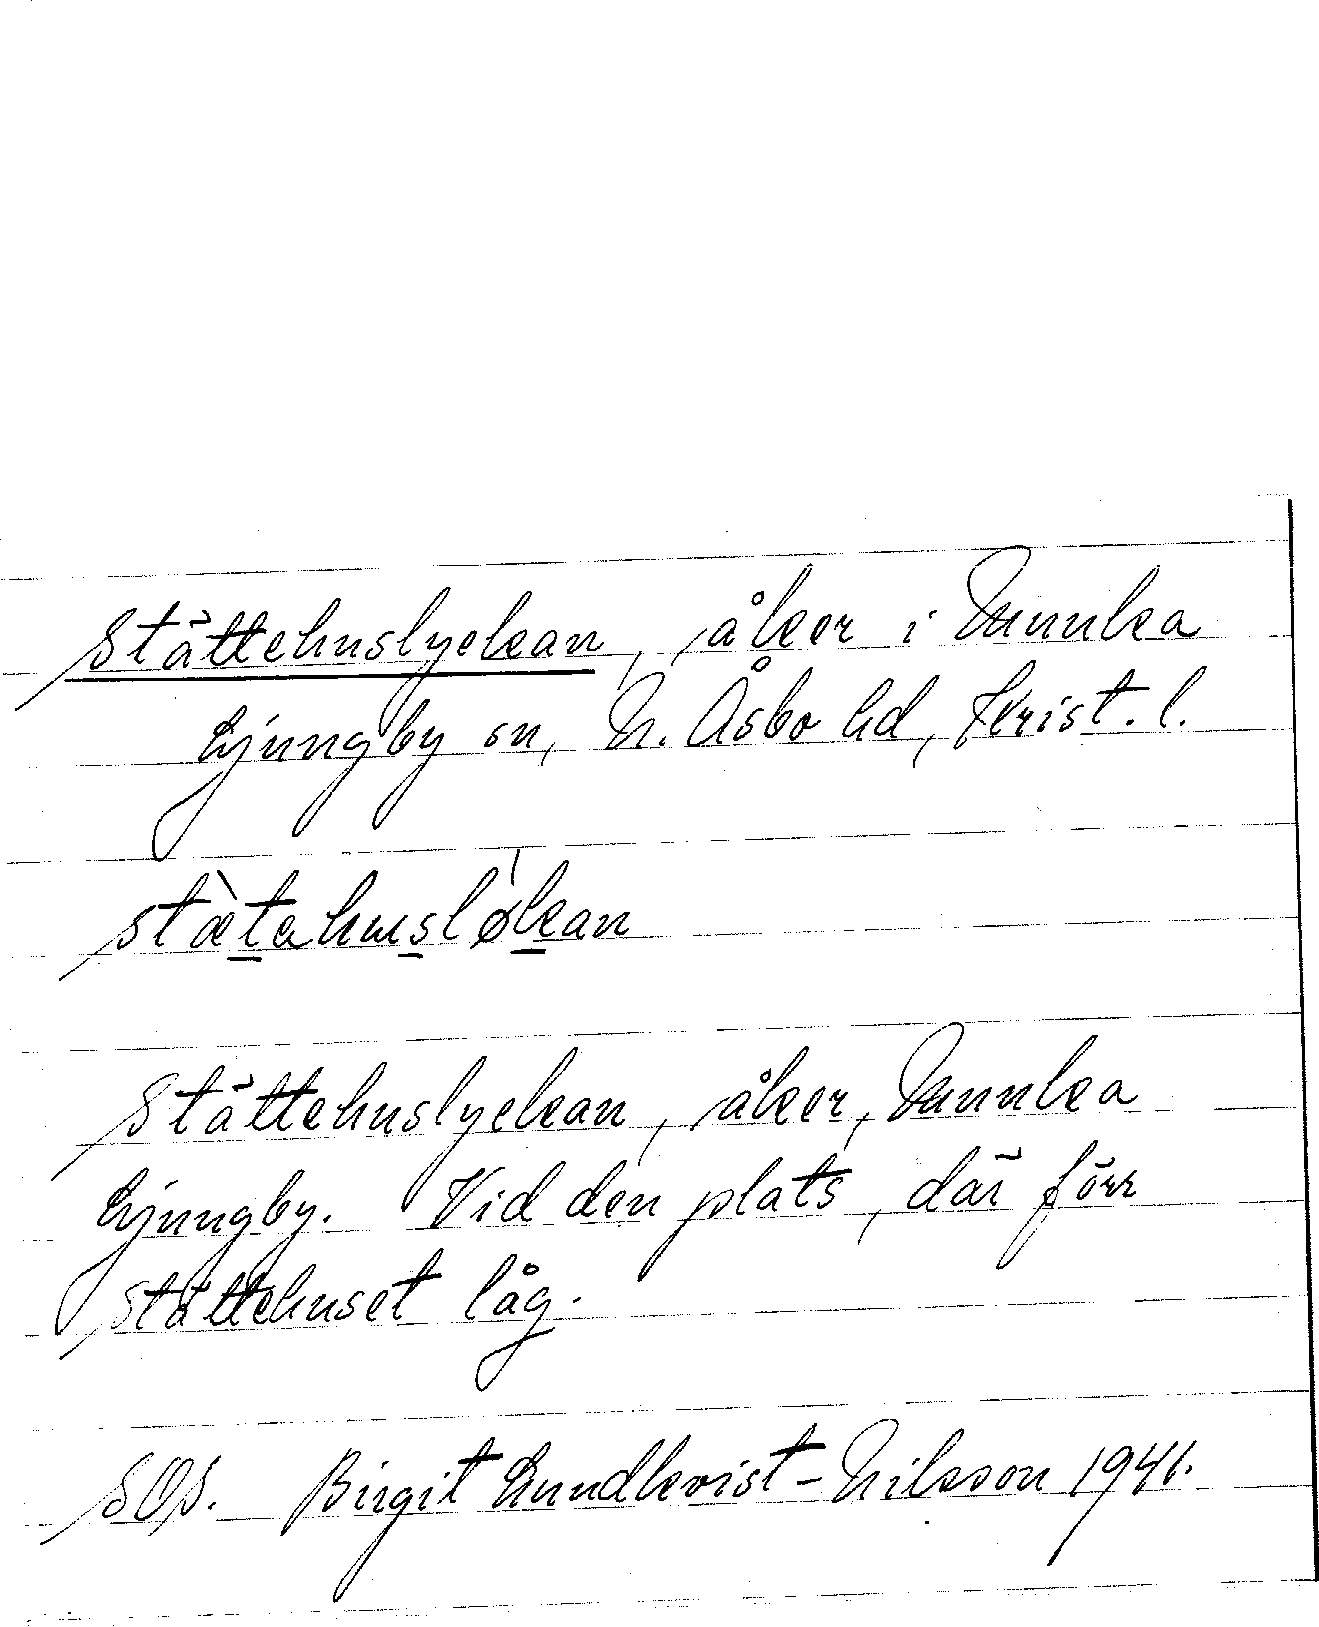 Stättehuslyckan, åker i Munka
Ljungby sn, N. Åsbo hd, Krist. l.
stæ̀tahusløkan
Stättehuslyckan, åker, Munka
Ljungby. Vid den plats, där förr
stättehuset låg.
SOS. Birgit Lundkvist-Nilsson 1941.